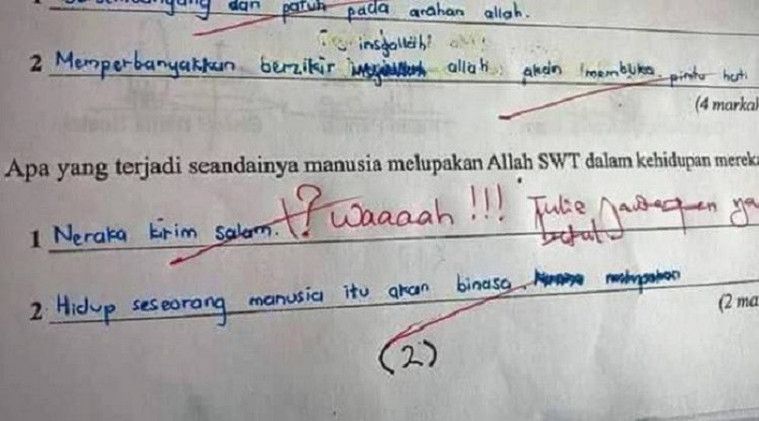 dan patuh pada arahan allah.
insyallah!
2 Memperbanyakkan berzikir allah akan membuka pintu hati
(4 markah
Apa yang terjadi seandainya manusia melupakan Allah SWT dalam kehidupan mereka
1 Neraka kirim salam. !? Waaaah !!! Tulis jawapan ya
betul
2 Hidup seseorang manusia itu akan binasa.
(2 ma
(2)